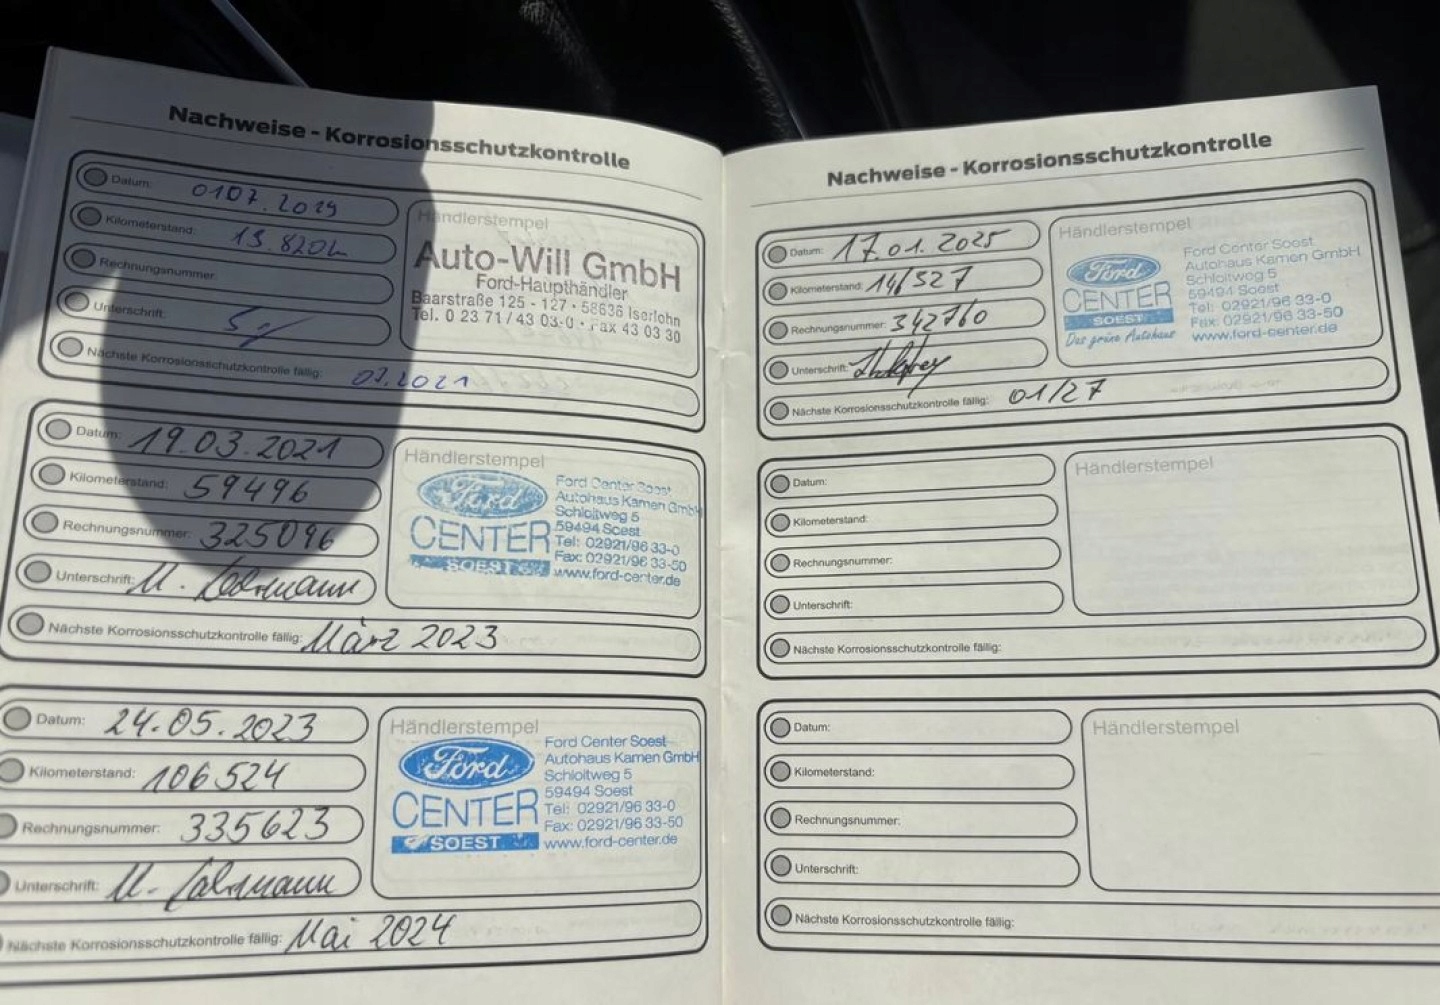 Nachweise - Korrosionsschutzkontrolle
Datum: 0107.2019
Kilometerstand: 19.820
Rechnungsnummer:
Unterschrift:
Nächste Korrosionsschutzkontrolle fällig: 07.2021
Händlerstempel
Auto-Will GmbH
Ford-Haupthändler
Baarstraße 125 - 127 · 58636 Iserlohn
Tel. 0 23 71 / 43 03-0 · Fax 43 03 30
Datum: 19.03.2021
Kilometerstand: 59496
Rechnungsnummer: 325096
Unterschrift:
Nächste Korrosionsschutzkontrolle fällig: März 2023
Händlerstempel
Ford
CENTER
SOEST
Ford Center Soest
Autohaus Kamen GmbH
Schloitweg 5
59494 Soest
Tel: 02921/96 33-0
Fax: 02921/96 33-50
www.ford-center.de
Datum: 24.05.2023
Kilometerstand: 106524
Rechnungsnummer: 335623
Unterschrift:
Nächste Korrosionsschutzkontrolle fällig: Mai 2024
Händlerstempel
Ford
CENTER
SOEST
Ford Center Soest
Autohaus Kamen GmbH
Schloitweg 5
59494 Soest
Tel: 02921/96 33-0
Fax: 02921/96 33-50
www.ford-center.de
Nachweise - Korrosionsschutzkontrolle
Datum: 17.01.2025
Kilometerstand: 141527
Rechnungsnummer: 342760
Unterschrift:
Nächste Korrosionsschutzkontrolle fällig: 01/27
Händlerstempel
Ford
CENTER
SOEST
Das grüne Autohaus
Ford Center Soest
Autohaus Kamen GmbH
Schloitweg 5
59494 Soest
Tel: 02921/96 33-0
Fax: 02921/96 33-50
www.ford-center.de
Datum:
Kilometerstand:
Rechnungsnummer:
Unterschrift:
Nächste Korrosionsschutzkontrolle fällig:
Händlerstempel
Datum:
Kilometerstand:
Rechnungsnummer:
Unterschrift:
Nächste Korrosionsschutzkontrolle fällig:
Händlerstempel